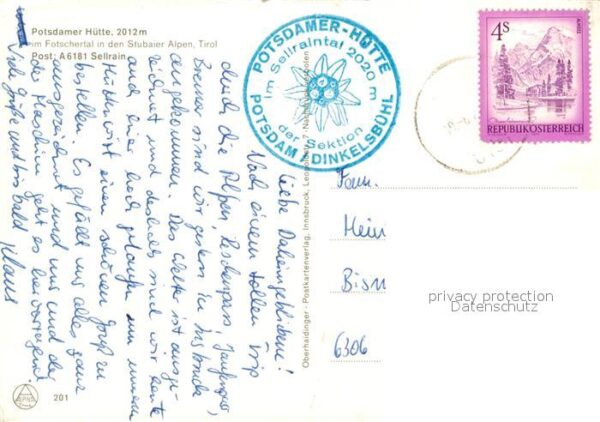 Potsdamer Hütte, 2012 m
im Fotschertal in den Stubaier Alpen, Tirol
Post: A 6181 Sellrain
POTSDAMER-HÜTTE
im Sellraintal 2020 m
der Sektion
POTSDAM / DINKELSBÜHL
4 S
REPUBLIK ÖSTERREICH
Liebe Daheimgebliebene!
Nach einem tollen Trip
durch die Alpen, Reschenpass,
Brenner sind wir gestern in Innsbruck
angekommen. Das Wetter ist ausge-
zeichnet und deshalb sind wir heute
auch hier hoch gelaufen um unserem
Hüttenwirt einen schönen Gruß zu
bestellen. Es gefällt uns alles ganz
ausgezeichnet und uns und der
der Maschine geht es hervorragend.
Viele Grüße und bis bald
Klaus
Fam.
Hein
Bism
6306
Oberhaidinger - Postkartenverlag, Innsbruck,
201
privacy protection
Datenschutz